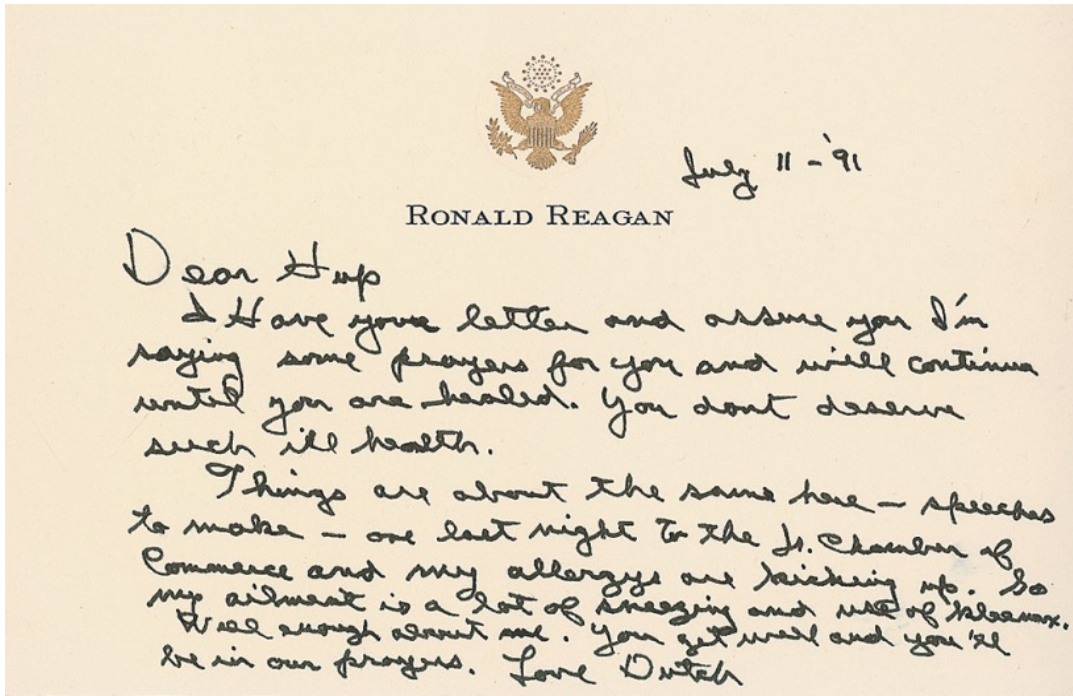 July 11 - '91
RONALD REAGAN
Dear Hup
I Have your letter and assure you I'm
saying some prayers for you and will continue
until you are healed. You dont deserve
such ill health.
Things are about the same here — speeches
to make — one last night to the Jr. Chamber of
Commerce and my allergys are kicking up. So
my ailment is a lot of sneezing and use of kleenex.
Well enough about me. You get well and you'll
be in our prayers. Love Dutch